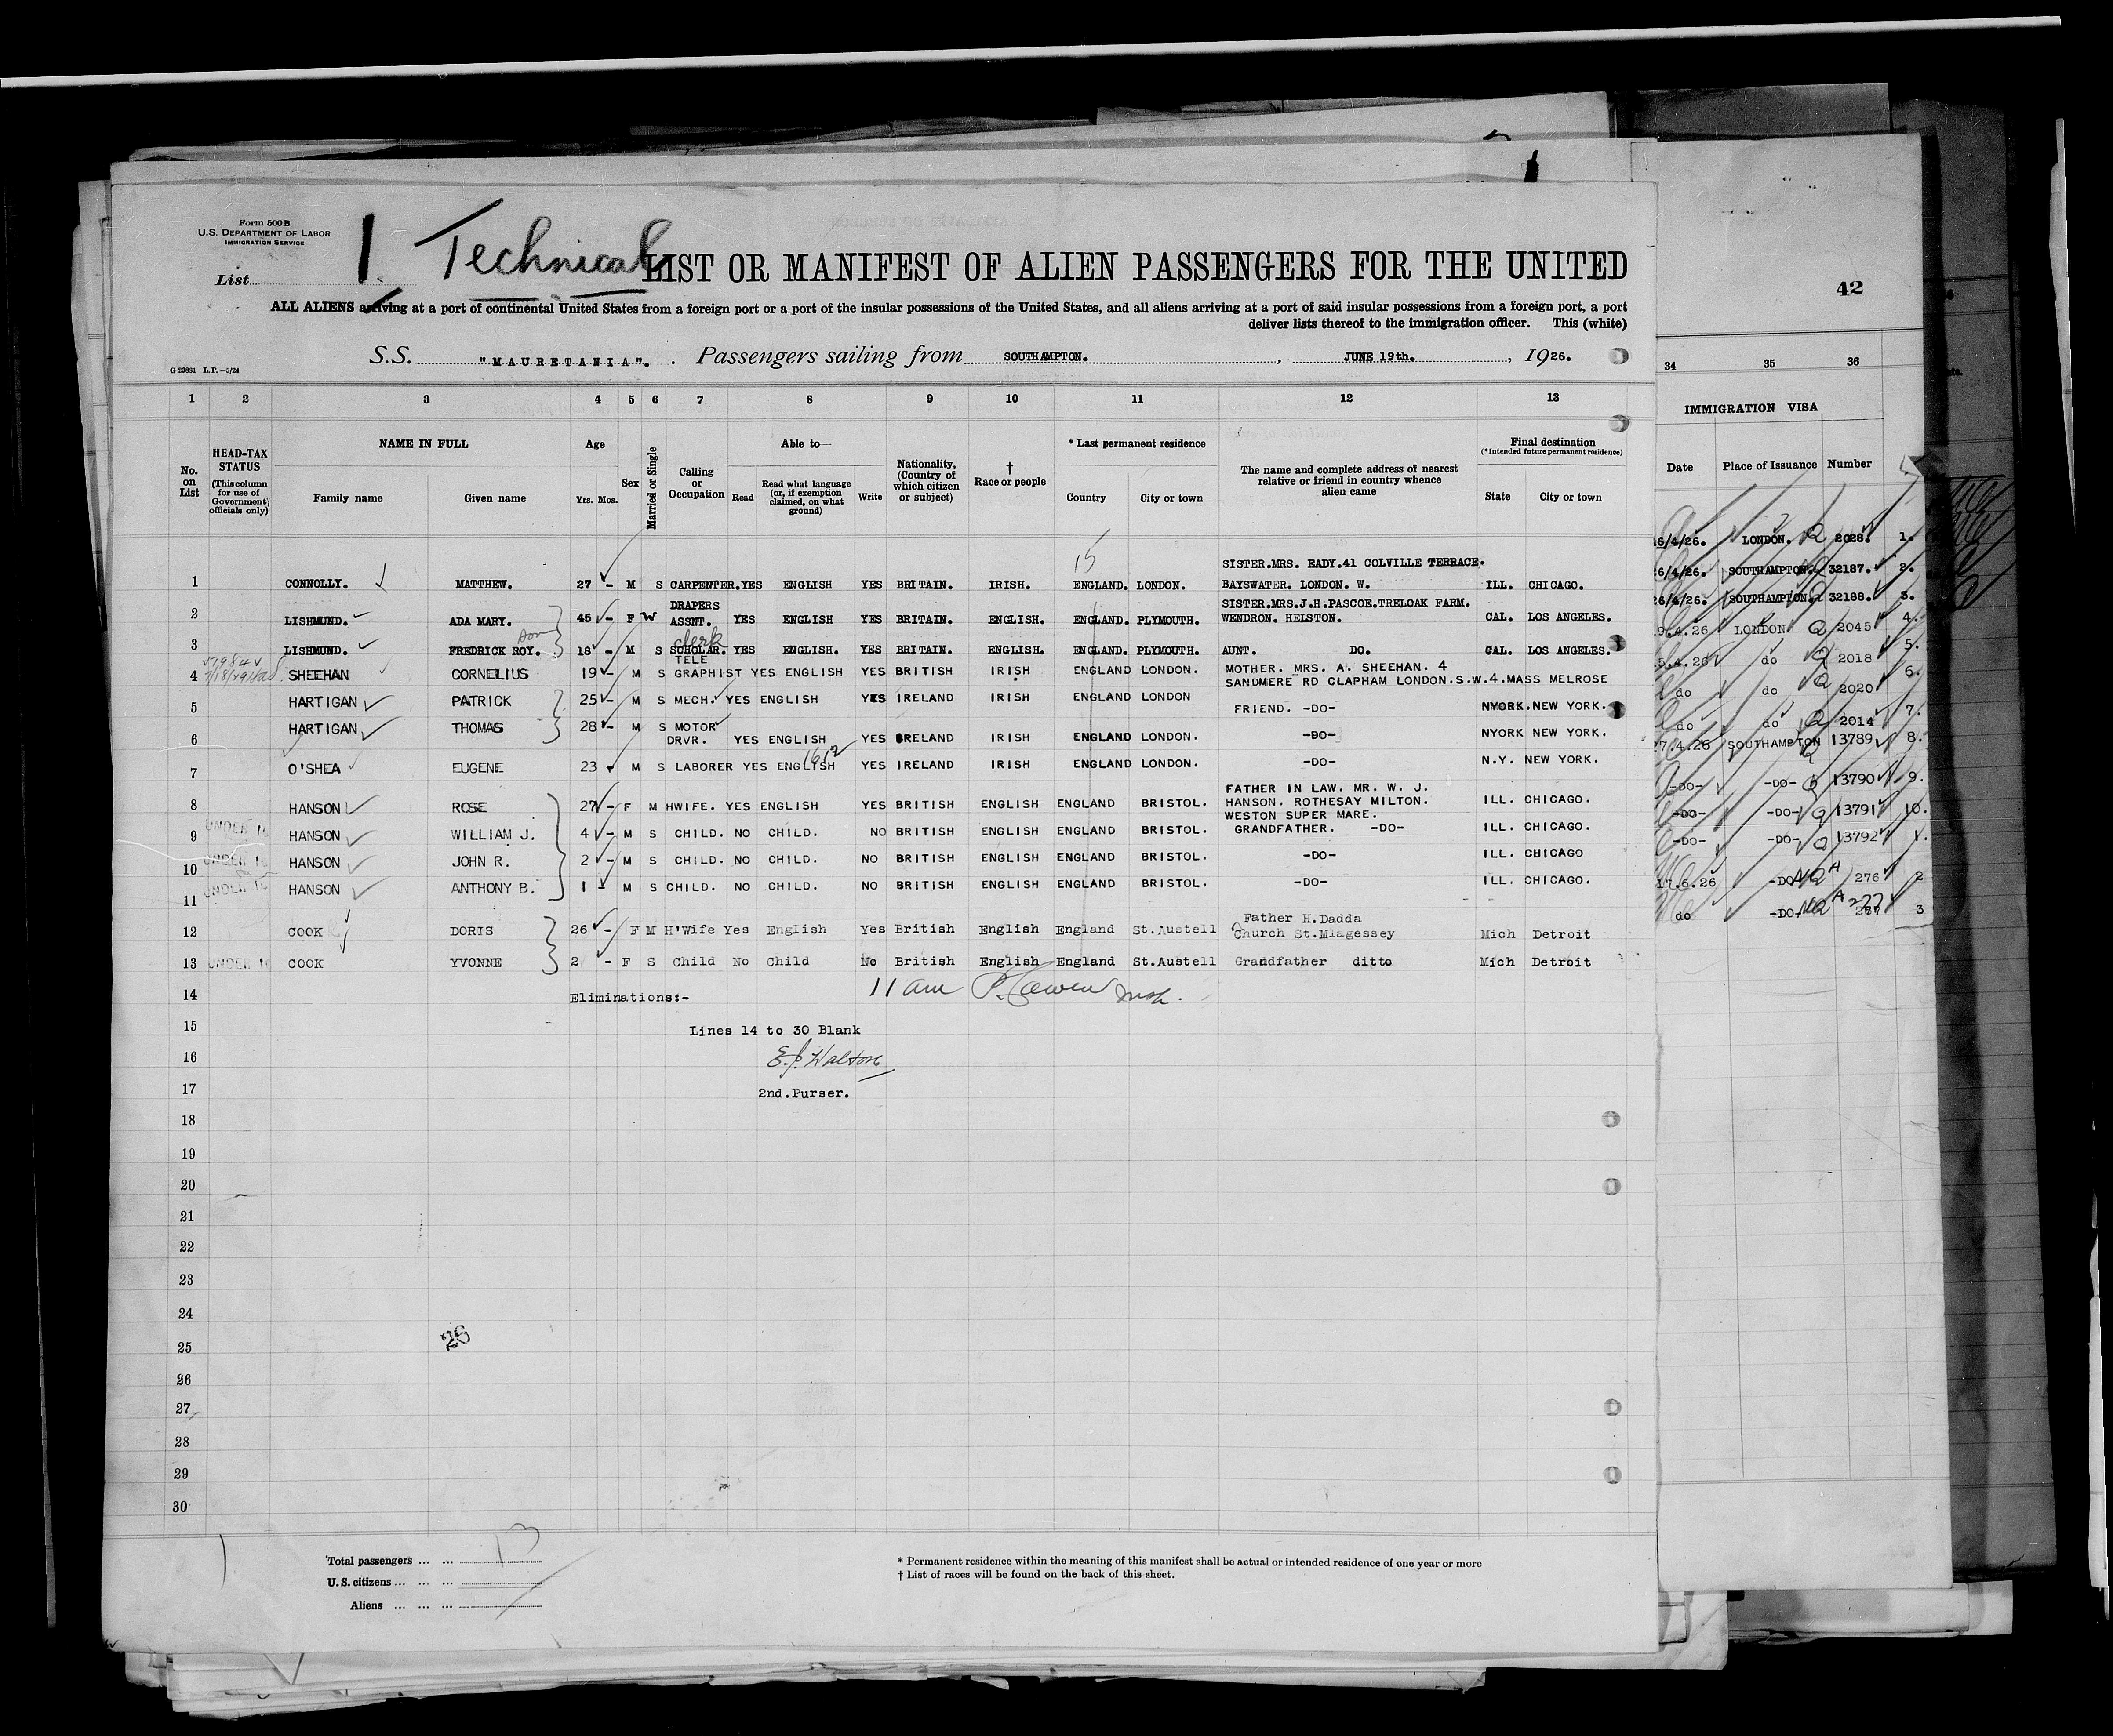 Form 500B
U.S. DEPARTMENT OF LABOR
IMMIGRATION SERVICE
List 1 Technical
LIST OR MANIFEST OF ALIEN PASSENGERS FOR THE UNITED
ALL ALIENS arriving at a port of continental United States from a foreign port or a port of the insular possessions of the United States, and all aliens arriving at a port of said insular possessions from a foreign port, a port
deliver lists thereof to the immigration officer. This (white)
S.S. "MAURETANIA". Passengers sailing from SOUTHAMPTON. , JUNE 19th. , 1926.
G 23881 L.P.—5/24
1 2 3 4 5 6 7 8 9 10 11 12 13
No. on List
HEAD-TAX STATUS (This column for use of Government officials only)
NAME IN FULL
Family name
Given name
Age
Yrs. Mos.
Sex
Married or Single
Calling or Occupation
Able to—
Read
Read what language (or, if exemption claimed, on what ground)
Write
Nationality, (Country of which citizen or subject)
† Race or people
* Last permanent residence
Country
City or town
The name and complete address of nearest relative or friend in country whence alien came
Final destination
(*Intended future permanent residence)
State
City or town
15
SISTER.MRS. EADY.41 COLVILLE TERRACE.
1 CONNOLLY. MATTHEW. 27 - M S CARPENTER. YES ENGLISH YES BRITAIN. IRISH. ENGLAND. LONDON. BAYSWATER. LONDON. W. ILL. CHICAGO.
DRAPERS SISTER.MRS.J.H.PASCOE.TRELOAK FARM.
2 LISHMUND. ADA MARY. 45 - F W ASSNT. YES ENGLISH YES BRITAIN. ENGLISH. ENGLAND. PLYMOUTH. WENDRON. HELSTON. CAL. LOS ANGELES.
Son clerk
3 LISHMUND. FREDRICK ROY. 18 - M S SCHOLAR. YES ENGLISH. YES BRITAIN. ENGLISH. ENGLAND. PLYMOUTH. AUNT. DO. CAL. LOS ANGELES.
TELE MOTHER. MRS. A. SHEEHAN. 4
4 SHEEHAN CORNELIUS 19 - M S GRAPHIST YES ENGLISH YES BRITISH IRISH ENGLAND LONDON. SANDMERE RD CLAPHAM LONDON.S.W.4. MASS MELROSE
5 HARTIGAN PATRICK 25 - M S MECH. YES ENGLISH YES IRELAND IRISH ENGLAND LONDON FRIEND. -DO- NYORK. NEW YORK.
6 HARTIGAN THOMAS 28 - M S MOTOR DRVR. YES ENGLISH YES IRELAND IRISH ENGLAND LONDON. -DO- NYORK NEW YORK.
1612
7 O'SHEA EUGENE 23 M S LABORER YES ENGLISH YES IRELAND IRISH ENGLAND LONDON. -DO- N.Y. NEW YORK.
FATHER IN LAW. MR. W. J.
8 HANSON ROSE 27 - F M HWIFE. YES ENGLISH YES BRITISH ENGLISH ENGLAND BRISTOL. HANSON. ROTHESAY MILTON. ILL. CHICAGO.
WESTON SUPER MARE.
9 UNDER 16 HANSON WILLIAM J. 4 - M S CHILD. NO CHILD. NO BRITISH ENGLISH ENGLAND BRISTOL. GRANDFATHER. -DO- ILL. CHICAGO.
10 UNDER 16 HANSON JOHN R. 2 - M S CHILD. NO CHILD. NO BRITISH ENGLISH ENGLAND BRISTOL. -DO- ILL. CHICAGO
11 UNDER 16 HANSON ANTHONY B. 1 - M S CHILD. NO CHILD. NO BRITISH ENGLISH ENGLAND BRISTOL. -DO- ILL. CHICAGO.
Father H.Dadda
12 COOK DORIS 26 - F M H'Wife Yes English Yes British English England St.Austell Church St.Mlagessey Mich Detroit
13 UNDER 16 COOK YVONNE 2 - F S Child No Child No British English England St.Austell Grandfather ditto Mich Detroit
14 Eliminations:- 11 am
15 Lines 14 to 30 Blank
16 E.J. Walton
17 2nd.Purser.
18
19
20
21
22
23
24
25
26
26
27
28
29
30
Total passengers 13
U.S. citizens
Aliens
* Permanent residence within the meaning of this manifest shall be actual or intended residence of one year or more
† List of races will be found on the back of this sheet.
42
34 35 36
IMMIGRATION VISA
Date Place of Issuance Number
6/4/26. LONDON. Q 2028. 1.
26/4/26. SOUTHAMPTON. 32187. 2.
26/4/26. SOUTHAMPTON. 32188. 3.
9.4.26 LONDON Q 2045 4.
5.4.26 do Q 2018 5.
do do Q 2020 6.
do do Q 2014 7.
7.4.26 SOUTHAMPTON 13789 8.
-DO- -DO- Q 13790 9.
-DO- -DO- Q 13791 10.
-DO- -DO- Q 13792 1.
17.6.26 -DO- NQ A 276 2
do -DO- NQ A 277 3